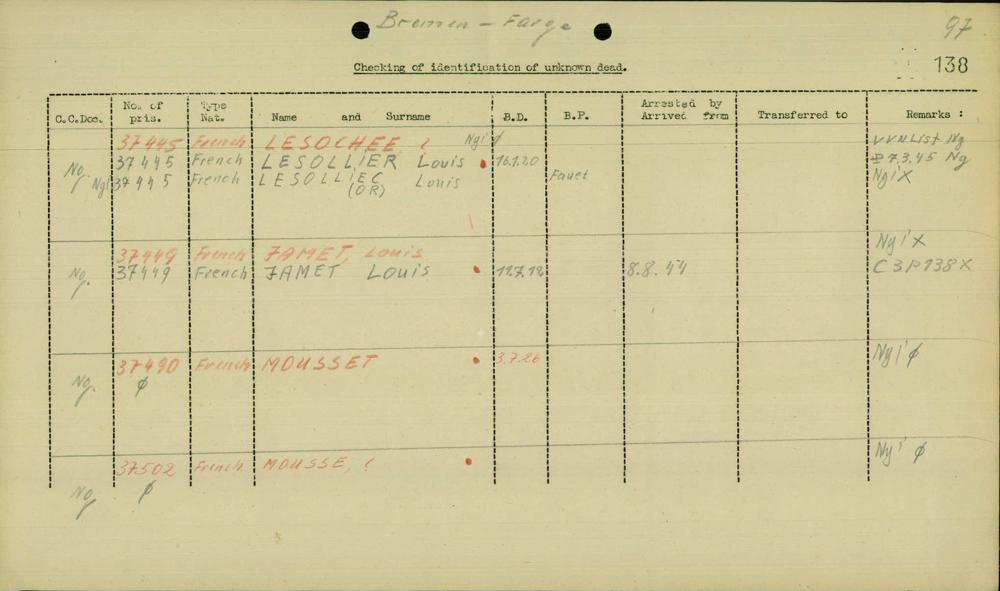 Bremen - Farge
97
138
Checking of identification of unknown dead.
C.C.Doc. No. of pris. Type Nat. Name and Surname B.D. B.P. Arrested by Arrived from Transferred to Remarks :
37445 French LESOCHEE ? Ngi' ø VVN List Ng
Ng. 37445 French LESOLLIER Louis 16.1.20 7.3.45 Ng
Ngi 37445 French LESOLLIEC Louis Fauet Ngi X
(OR)
37449 French JAMET, Louis Ngi' X
Ng. 37449 French JAMET Louis 8.8.44 C3P138X
37490 French MOUSSET 3.7.26 Ngi' ø
Ng. ø
37502 French MOUSSE, ? Ngi' ø
Ng ø